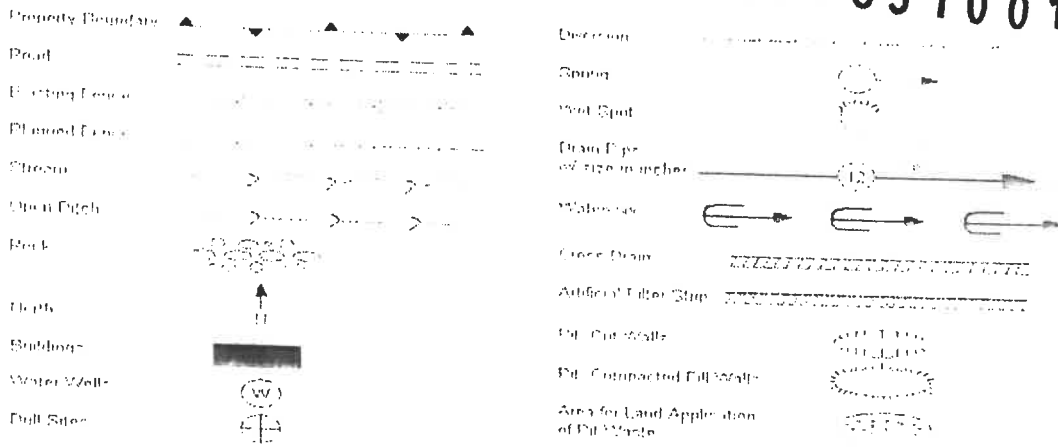 Property Boundary
Road
Existing Fence
Planned Fence
Stream
Open Ditch
Rock
North
N
Buildings
Water Wells
W
Drill Sites
Diversion
Spring
Wet Spot
Drain Pipe
w/ size in inches
12
Waterway
Cross Drain
Artificial Filter Strip
Pit: Cut Walls
Pit: Compacted Fill Walls
Area for Land Application
of Pit Waste